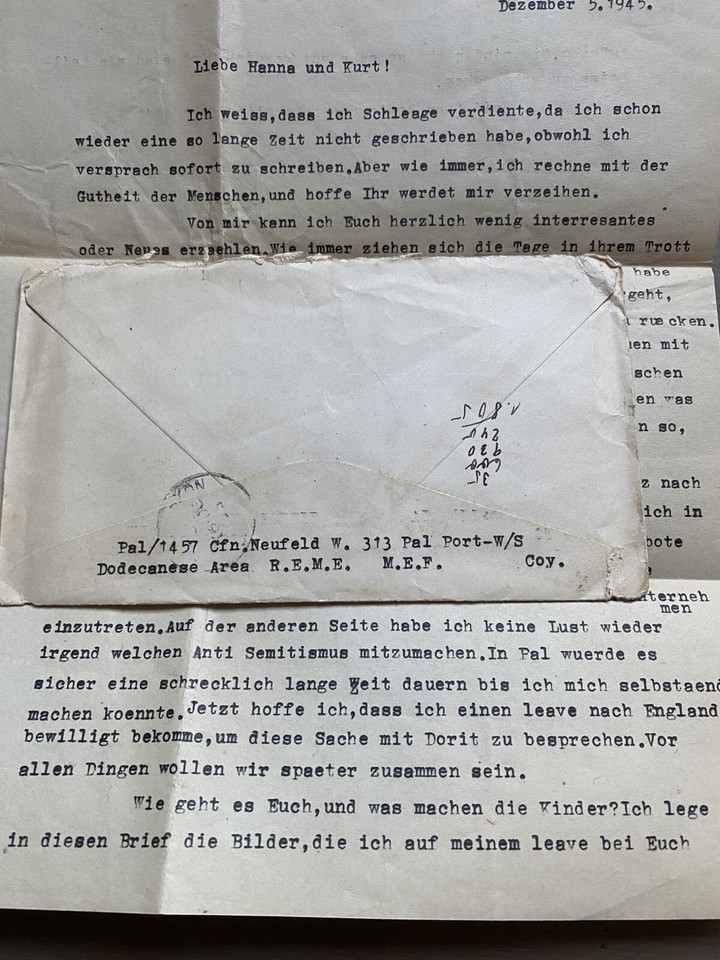 Dezember 5.1945.
Liebe Hanna und Kurt!
Ich weiss,dass ich Schleage verdiente,da ich schon
wieder eine so lange Zeit nicht geschrieben habe,obwohl ich
versprach sofort zu schreiben.Aber wie immer,ich rechne mit der
Gutheit der Menschen,und hoffe Ihr werdet mir verzeihen.
Von mir kann ich Euch herzlich wenig interresantes
oder Neues erzaehlen.Wie immer ziehen sich die Tage in ihrem Trott
habe
geht,
ruecken.
mit
schen
was
so,
nach
ich in
bote
1.801
240
930
600
31
Pal/1457 Cfn.Neufeld W. 313 Pal Port-W/S
Dodecanese Area R.E.M.E. M.E.F. Coy.
nterneh
men
einzutreten.Auf der anderen Seite habe ich keine Lust wieder
irgend welchen Anti Semitismus mitzumachen.In Pal wuerde es
sicher eine schrecklich lange Zeit dauern bis ich mich selbstaend
machen koennte.Jetzt hoffe ich,dass ich einen leave nach England
bewilligt bekomme,um diese Sache mit Dorit zu besprechen.Vor
allen Dingen wollen wir spaeter zusammen sein.
Wie geht es Euch,und was machen die Kinder?Ich lege
in diesen Brief die Bilder,die ich auf meinem leave bei Euch